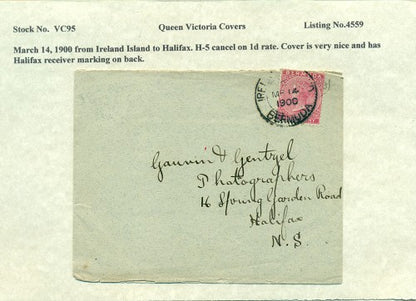 Stock No. VC95 Queen Victoria Covers Listing No.4559
March 14, 1900 from Ireland Island to Halifax. H-5 cancel on 1d rate. Cover is very nice and has
Halifax receiver marking on back.
BERMUDA
IREL
MR 14
1900
BERMUDA
Gauvin & Gentzel
Photographers
16 Spring Garden Road
Halifax
N.S.